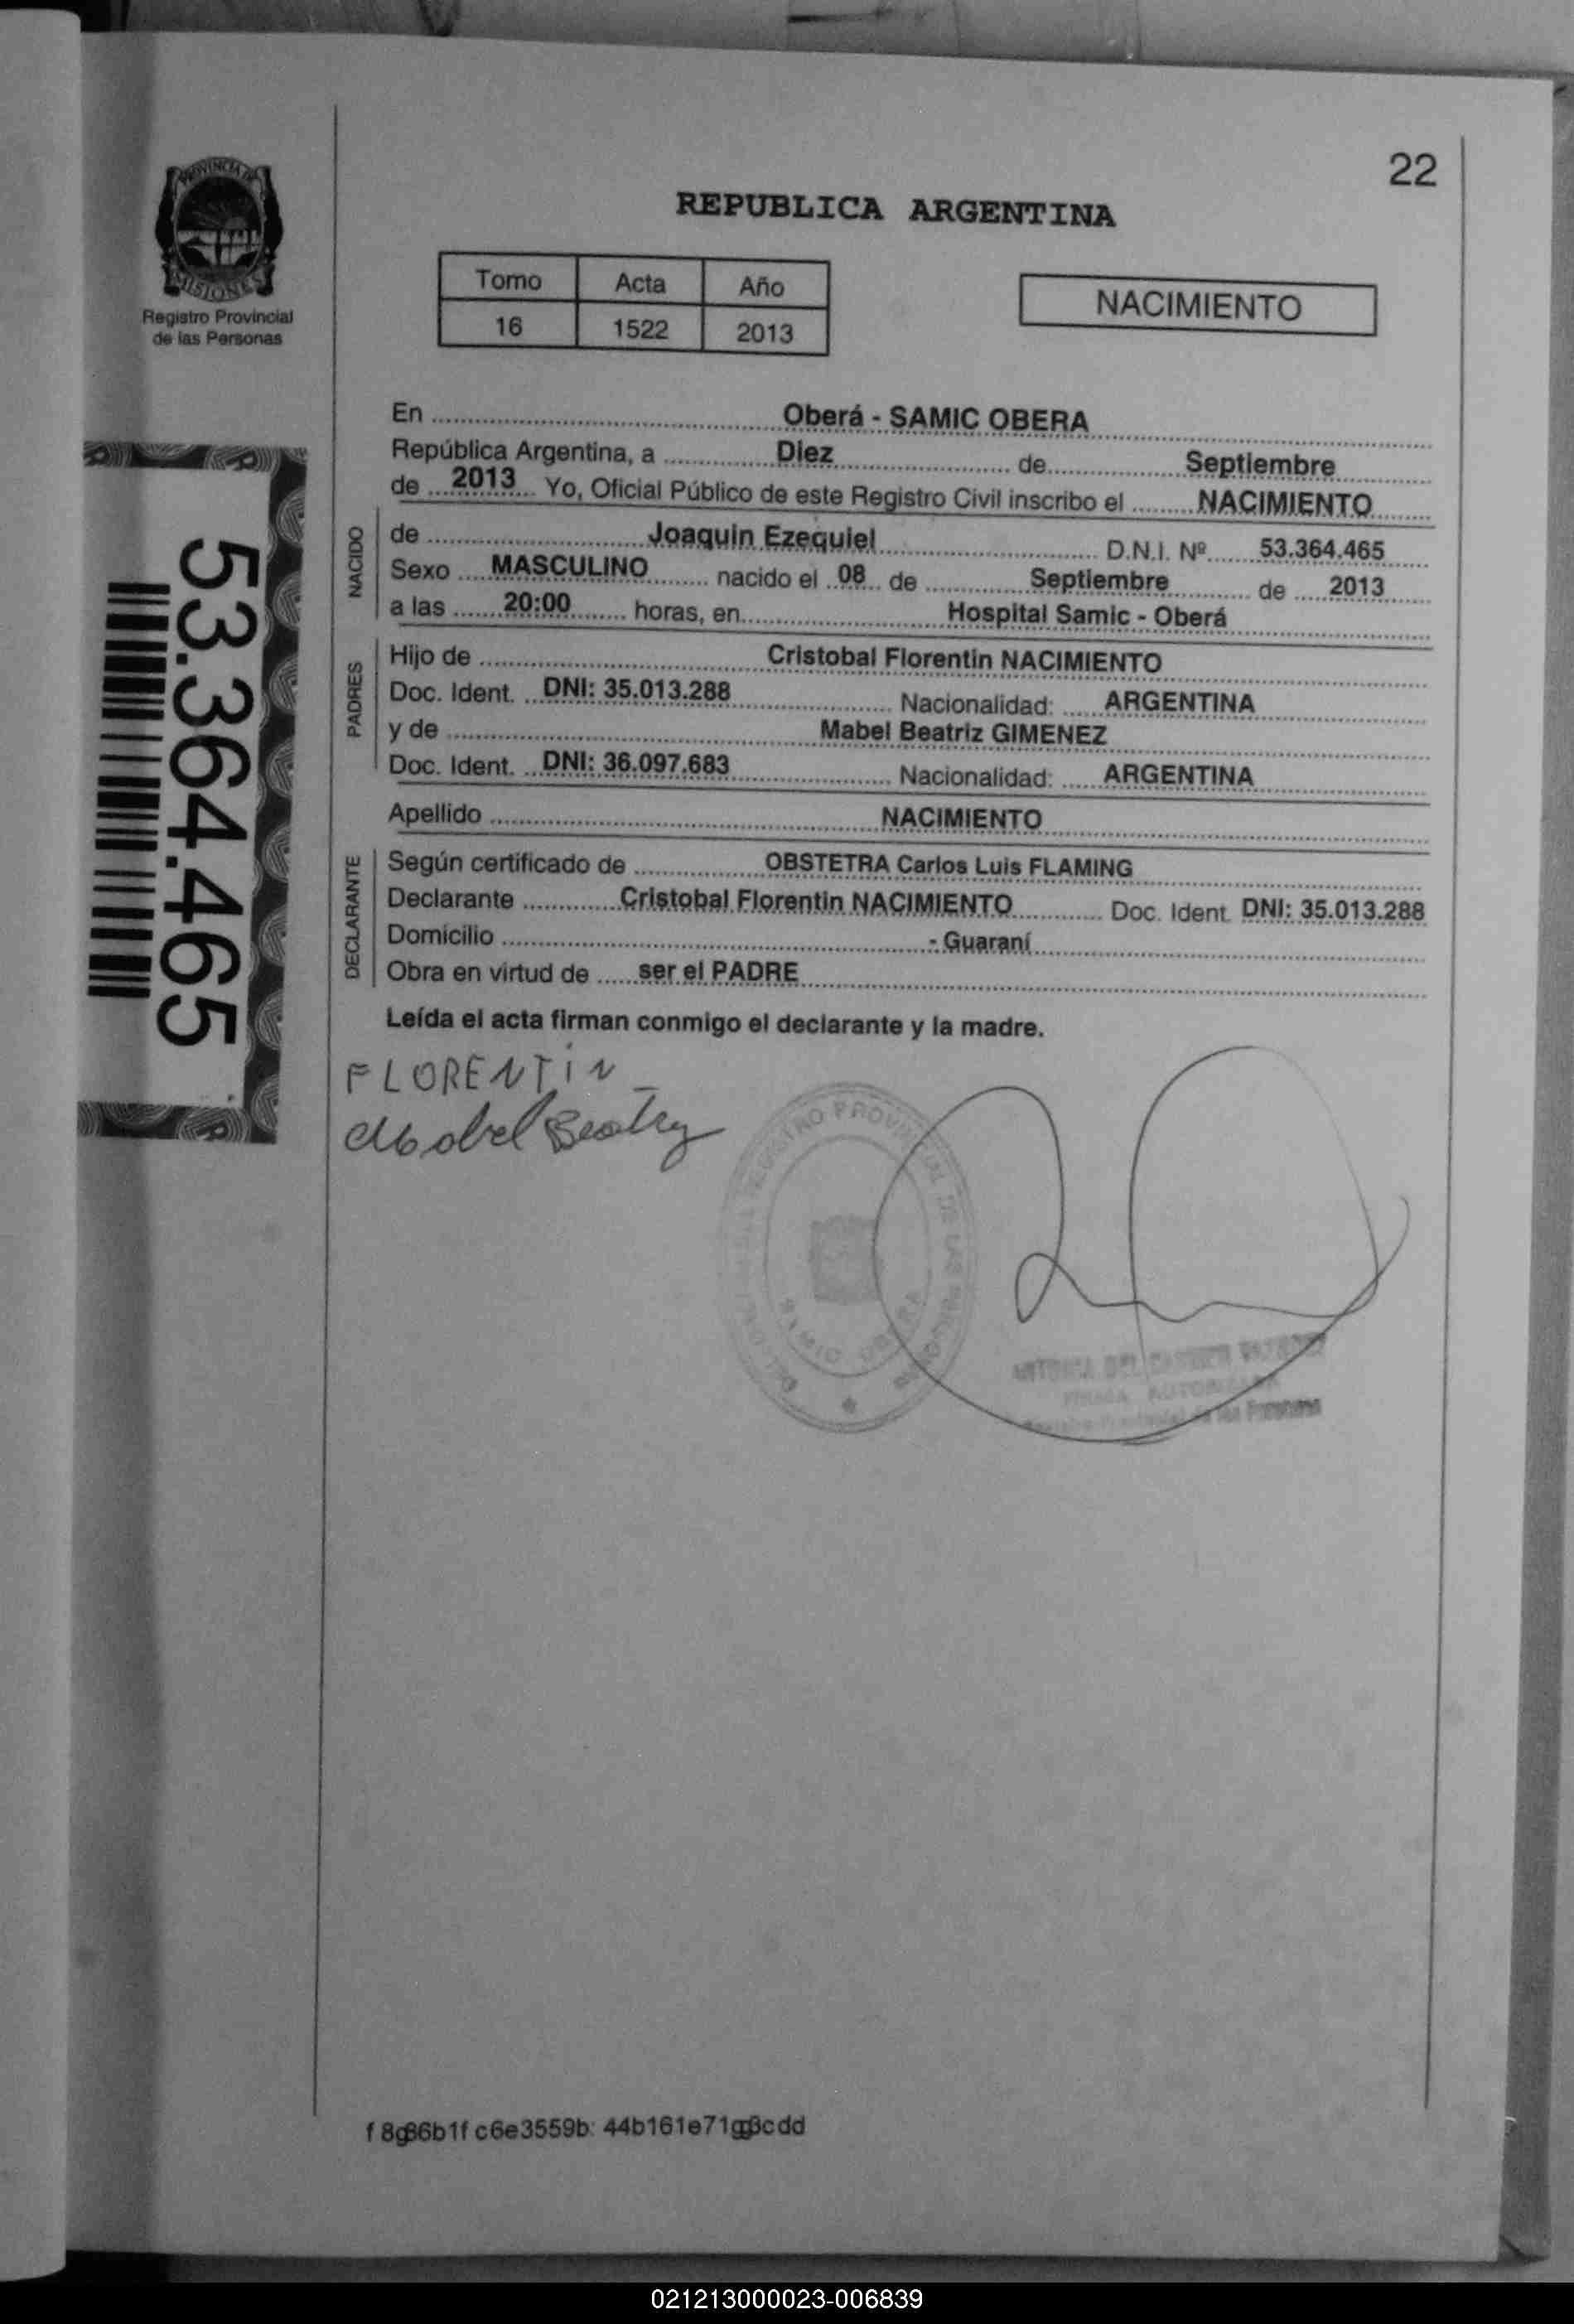 22
PROVINCIA DE
MISIONES
Registro Provincial
de las Personas
REPUBLICA ARGENTINA
Tomo Acta Año
16 1522 2013
NACIMIENTO
En Oberá - SAMIC OBERA
República Argentina, a Diez de Septiembre
de 2013 Yo, Oficial Público de este Registro Civil inscribo el NACIMIENTO
NACIDO
de Joaquin Ezequiel D.N.I. Nº 53.364.465
Sexo MASCULINO nacido el 08 de Septiembre de 2013
a las 20:00 horas, en Hospital Samic - Oberá
PADRES
Hijo de Cristobal Florentin NACIMIENTO
Doc. Ident. DNI: 35.013.288 Nacionalidad: ARGENTINA
y de Mabel Beatriz GIMENEZ
Doc. Ident. DNI: 36.097.683 Nacionalidad: ARGENTINA
Apellido NACIMIENTO
DECLARANTE
Según certificado de OBSTETRA Carlos Luis FLAMING
Declarante Cristobal Florentin NACIMIENTO Doc. Ident. DNI: 35.013.288
Domicilio - Guaraní
Obra en virtud de ser el PADRE
Leída el acta firman conmigo el declarante y la madre.
53.364.465
FLORENTiN
Mabel Beatriz
REGISTRO PROVINCIAL DE LAS PERSONAS
SAMIC OBERA
de las Personas
021213000023-006839